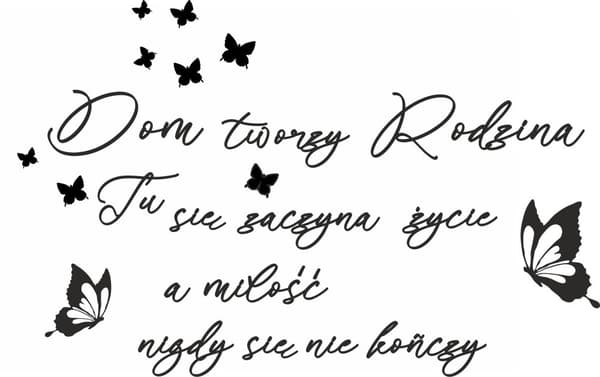 Dom tworzy Rodzina
Tu się zaczyna życie
a miłość
nigdy się nie kończy